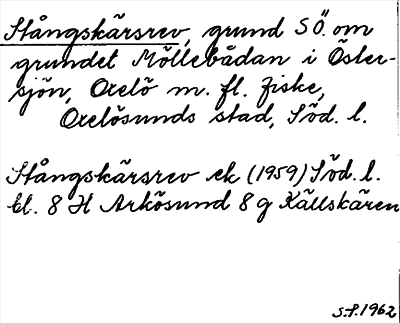 Stångskärsrev, grund SÖ. om
grundet Möllebådan i Öster-
sjön, Oxelö m. fl. fiske,
Oxelösunds stad, Söd. l.
Stångskärsrev ek (1959) Söd. l.
bl. 8 H Arkösund 8 g Källskären
S.P. 1962